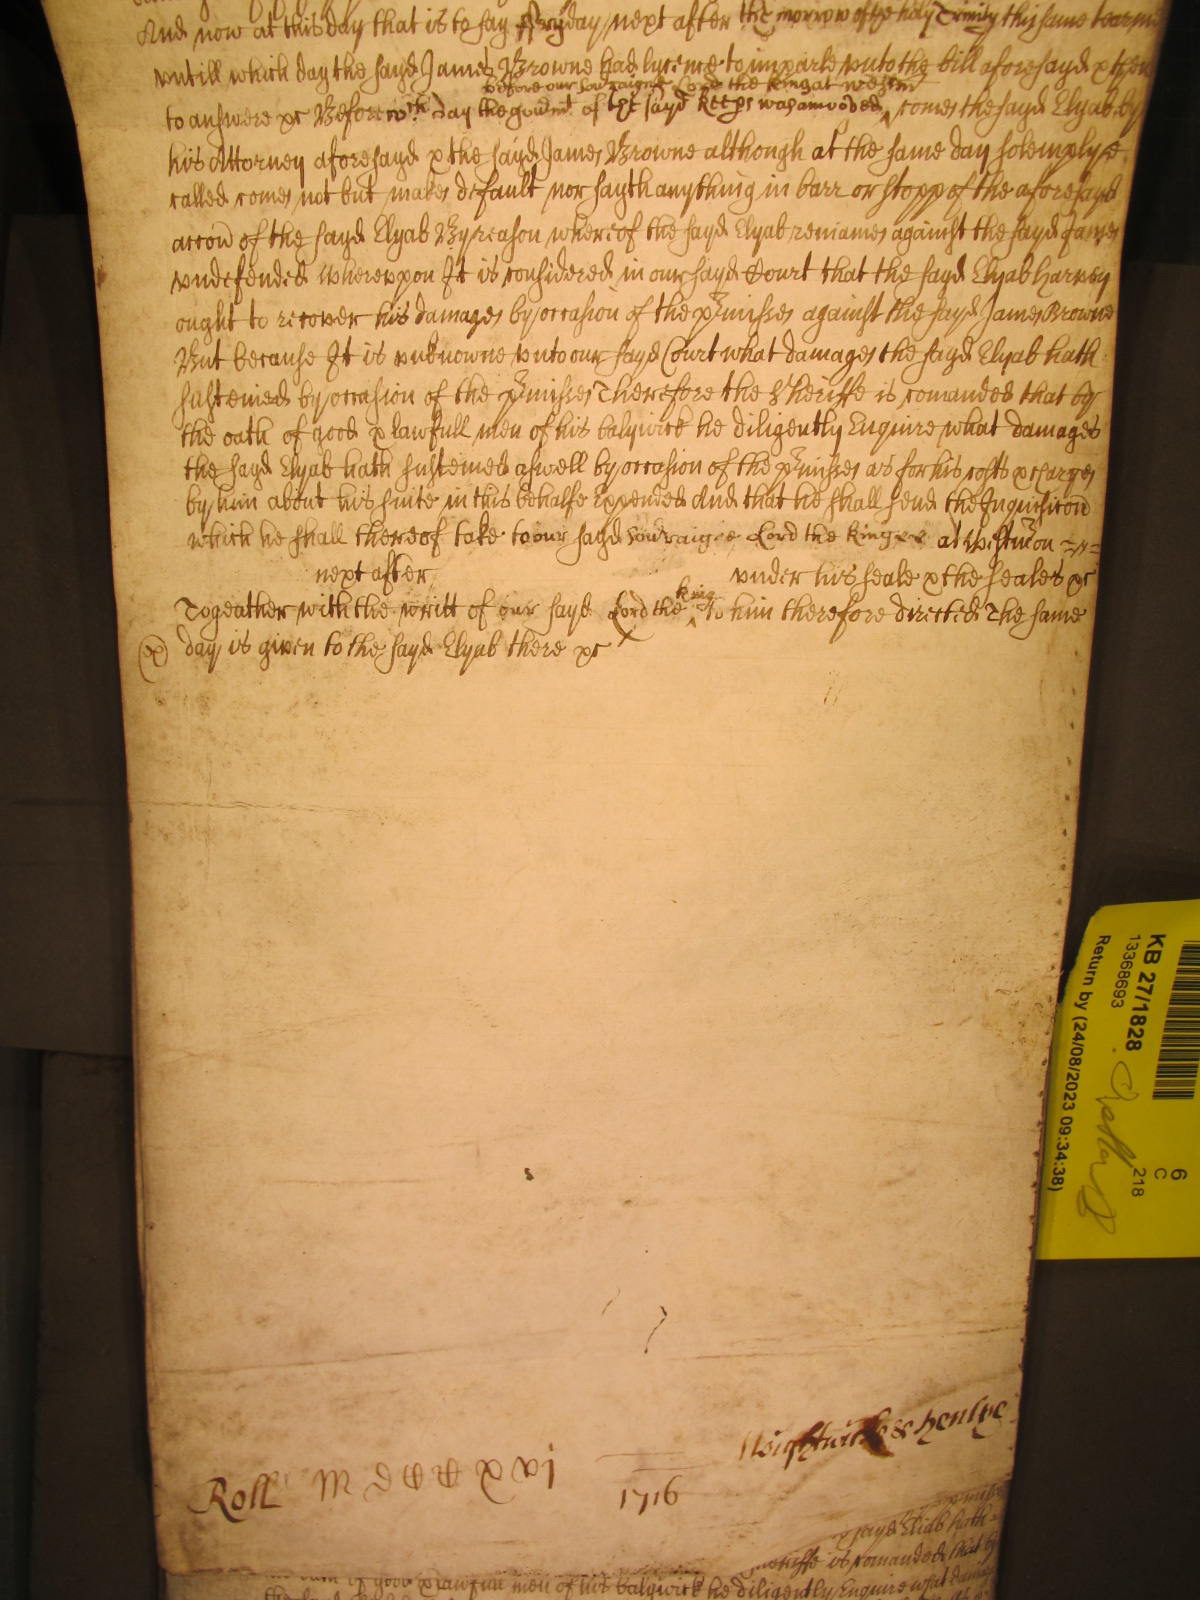 And now at this day that is to say Fryday next after the morrow of the holy Trinity this same tearme
untill which day the sayd James Browne had lycence to imparle unto the bill aforesayd & then
before our Soveraigne Lord the King at Westm
to answere &c Before wch day the govmt of the sayd Keeps was amooved comes the sayd Elyab by
his Attorney aforesayd & the sayd James Browne although at the same day solemplye
called comes not but makes default nor sayth anything in barr or stopp of the aforesayd
accon of the sayd Elyab By reason whereof the sayd Elyab remaines against the sayd James
undefended Whereupon It is considered in our sayd Court that the sayd Elyab Harvey
ought to recover his damages by occasion of the pmisses against the sayd James Browne
But because It is unknowne unto our sayd Court what damages the sayd Elyab hath
susteined by occasion of the pmisses Therefore the Sheriffe is comanded that by
the oath of good & lawfull men of his balywick he diligently Enquire what damages
the sayd Elyab hath susteined aswell by occasion of the pmisses as for his costs & charges
by him about his suite in this behalfe Expended And that he shall send the Inquisicon
which he shall thereof take to our sayd Soveraigne Lord the King at Westm on
next after under his seale & the seales &c
king
Togeather with the writt of our sayd Lord the to him therefore directed The same
day is given to the sayd Elyab there &c
Roll M D CC XVI
1716
& Henlye
sayd Eliab hath
Sheriffe is comanded that by
the oath of good & lawfull men of his balywick he diligently Enquire what
KB 27/1828
13368693
Return by (24/08/2023 09:34:38)
218
C
6